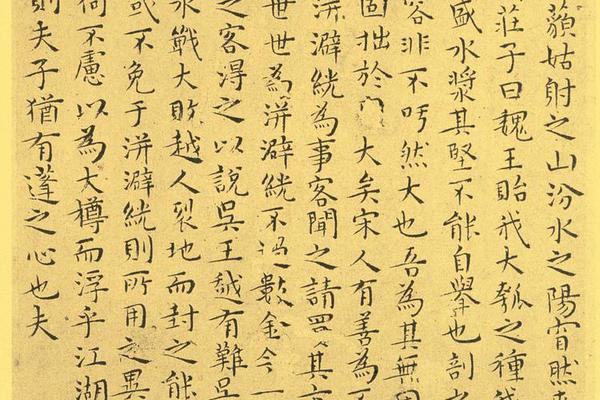 藐姑射之山汾水之陽窅然
莊子曰魏王貽我大瓠之種我
盛水漿其堅不能自舉也剖之
容非不呺然大也吾為其無用
固拙於大矣宋人有善為不
洴澼絖為事客聞之請買其方
世世為洴澼絖不過數金今一
之客得之以說吳王越有難吳
水戰大敗越人裂地而封之能
或不免于洴澼絖則所用之異
何不慮以為大樽而浮乎江湖
則夫子猶有蓬之心也夫